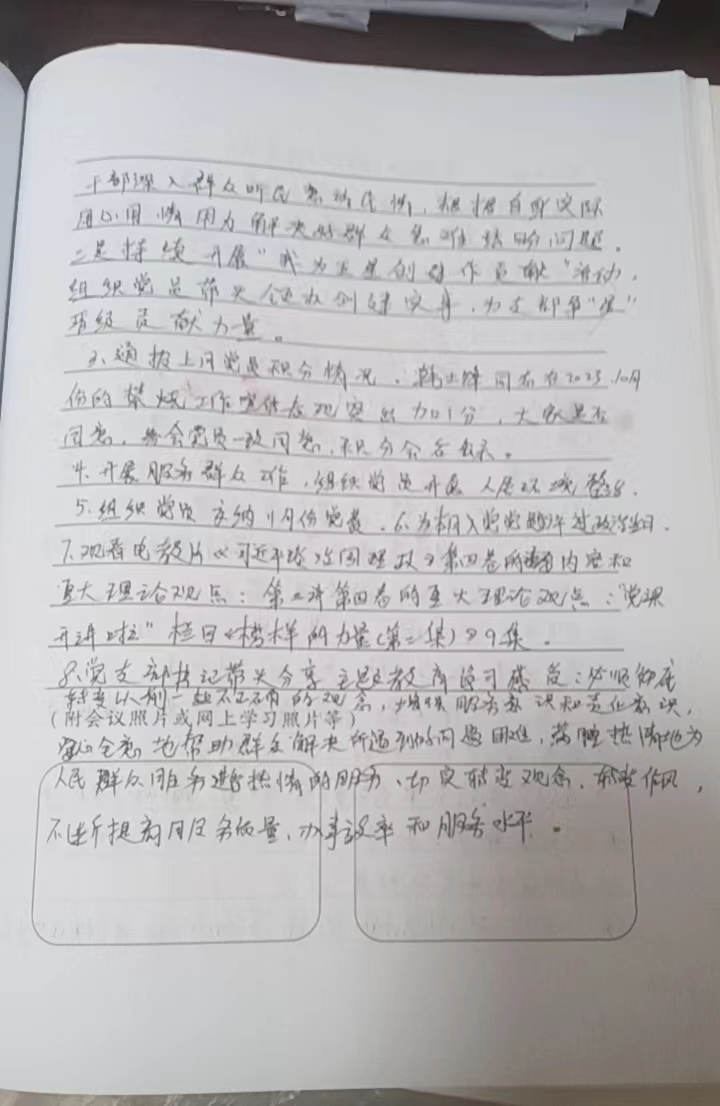 干部深入群众听民意访民情,根据自身实际
用心用情用力解决好群众急难愁盼问题。
二是持续开展"我为五星创建作贡献"活动,
组织党员带头领办创建实事,为支部争"星"
晋级贡献力量。
3、通报上月党员积分情况。同志在2023.10月
份的禁烧工作中表现突出加1分,大家是否
同意,与会党员一致同意,积分会后公示。
4.开展服务群众工作,组织党员开展人居环境整治.
5.组织党员交纳11月份党费.6.为本月入党党员过政治生日.
7.观看电教片《习近平谈治国理政》第四卷的内容和
重大理论观点:第二讲第四卷的重大理论观点:"党课
开讲啦"栏目《榜样的力量(第二集)》9集。
8、党支部书记带头分享主题教育学习感受:必须彻底
转变以前一些不正确的观念,增强服务意识和责任意识,
(附会议照片或网上学习照片等)
全心全意地帮助群众解决所遇到的问题困难,满腔热情地为
人民群众服务进行热情的服务、切实转变观念,转变作风,
不断提高服务质量,办事效率和服务水平。